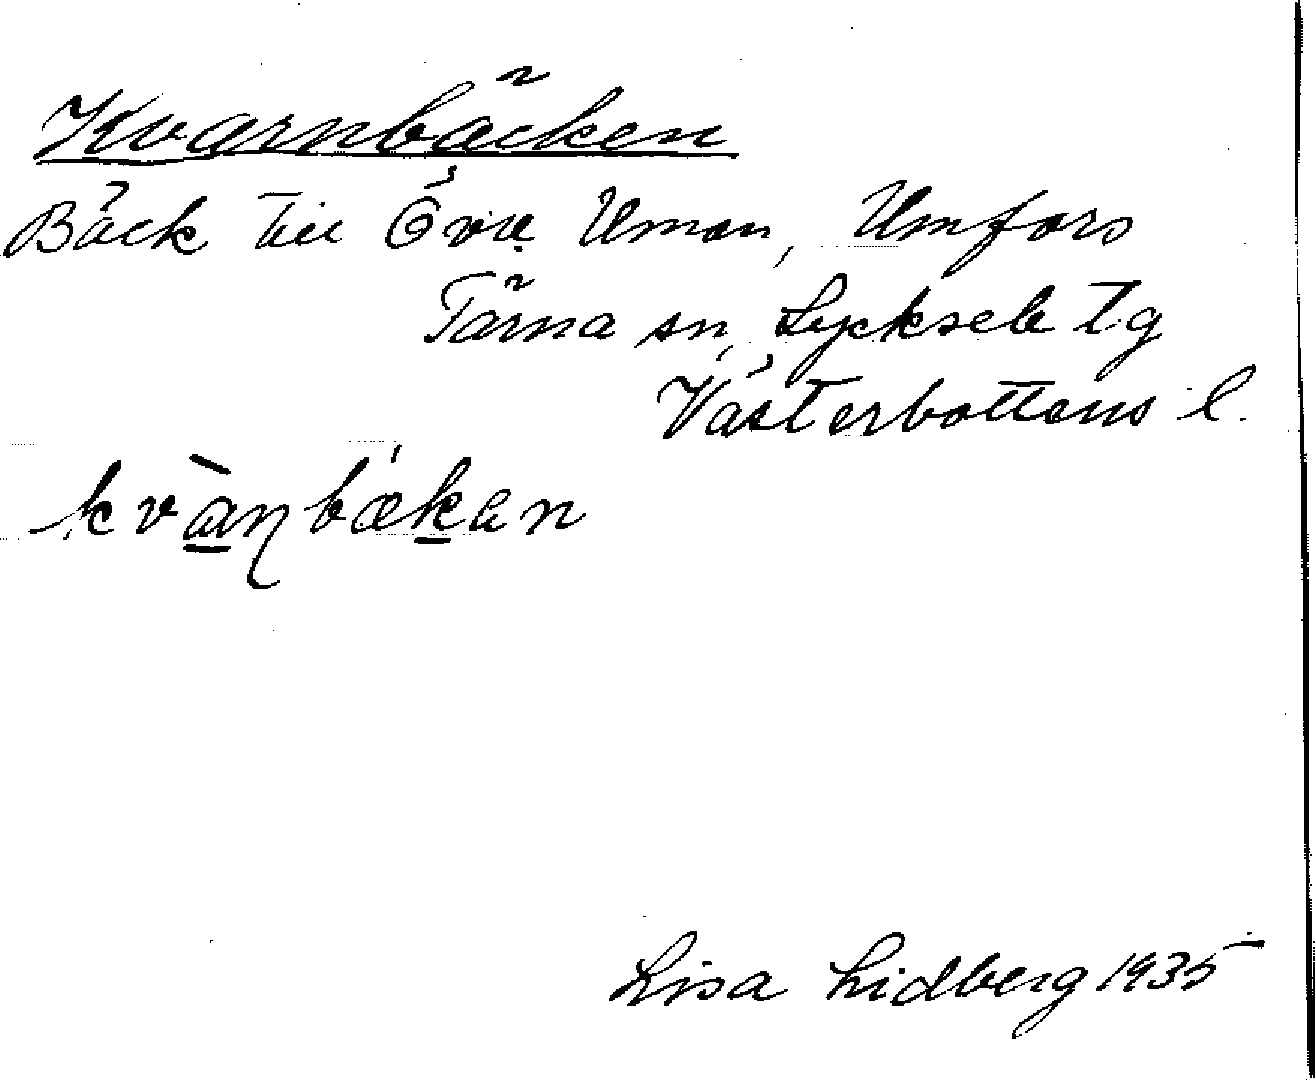 Kvarnbäcken
Bäck till Övre Uman, Umfors
Tärna sn, Lycksele tg
Västerbottens l.
kvànbækan
Lisa Lidberg 1935